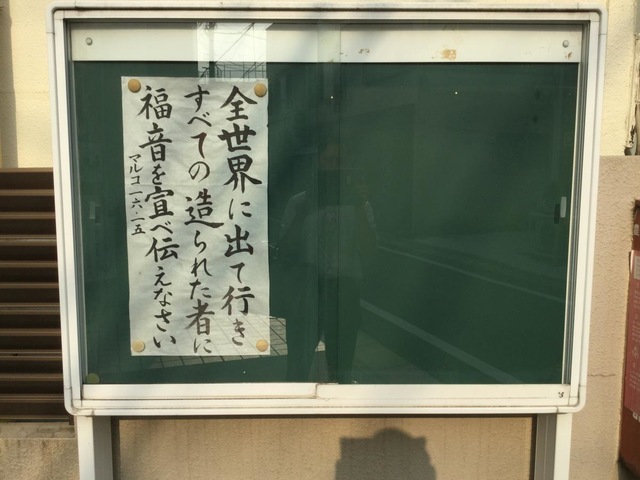 全世界に出て行き
すべての造られた者に
福音を宣べ伝えなさい
マルコ一六・一五